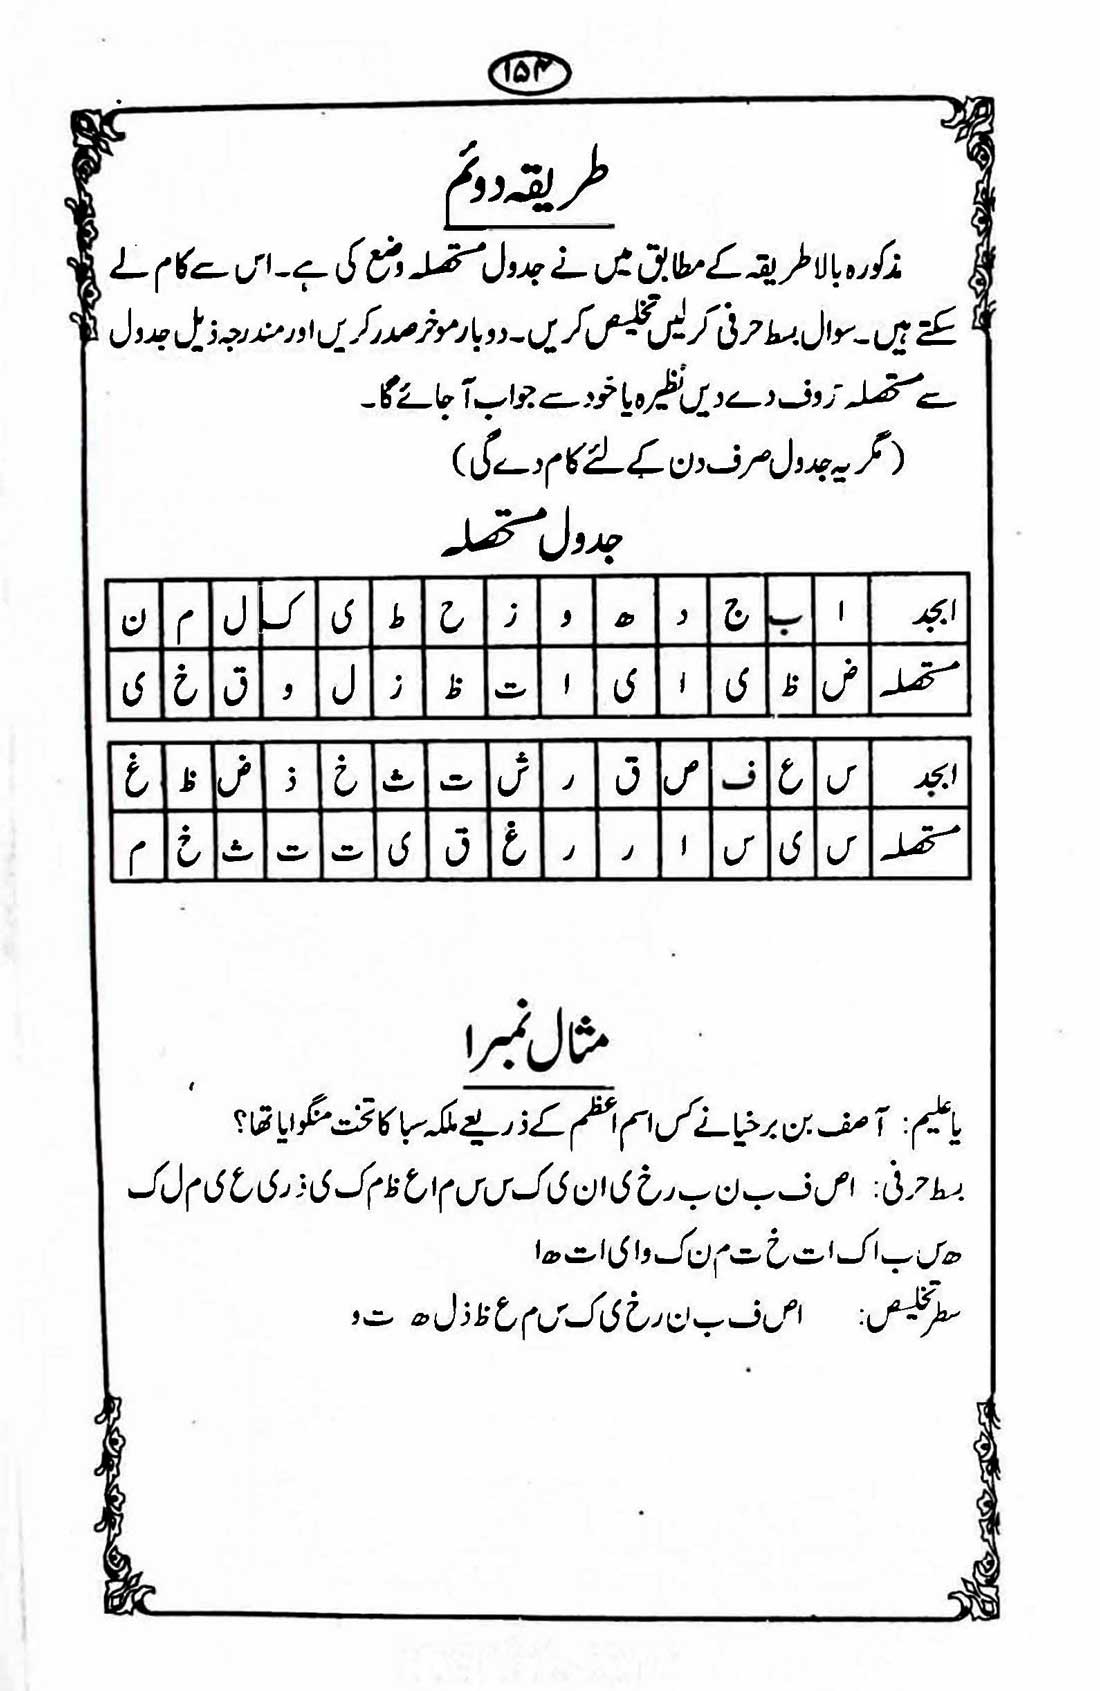 ۱۵۴
طریقہ دوئم
مذکورہ بالا طریقہ کے مطابق میں نے جدول مستحصلہ وضع کی ہے۔ اس سے کام لے
سکتے ہیں۔ سوال بسط حرفی کر لیں تخلیص کریں۔ دو بار موخر صدر کریں اور مندرجہ ذیل جدول
سے مستحصلہ روف دے دیں نظیرہ یا خود سے جواب آ جائے گا۔
(مگر یہ جدول صرف دن کے لئے کام دے گی)
جدول مستحصلہ
ابجد ا ب ج د ھ و ز ح ط ی ک ل م ن
مستحصلہ ض ظ ی ا ی ا ت ظ ز ل و ق خ ی
ابجد س ع ف ص ق ر ش ت ث خ ذ ض ظ غ
مستحصلہ س ی س ا ر ر غ ق ی ت ت ث خ م
مثال نمبر ۱
یا علیم: آصف بن برخیا نے کس اسم اعظم کے ذریعے ملکہ سبا کا تخت منگوایا تھا؟
بسط حرفی: ا ص ف ب ن ب ر خ ی ا ن ی ک س س م ا ع ظ م ک ی ذ ر ی ع ی م ل ک
ھ س ب ا ک ا ت خ ت م ن ک و ا ی ا ت ھ ا
سطر تخلیص: ا ص ف ب ن ر خ ی ک س م ع ظ ذ ل ھ ت و